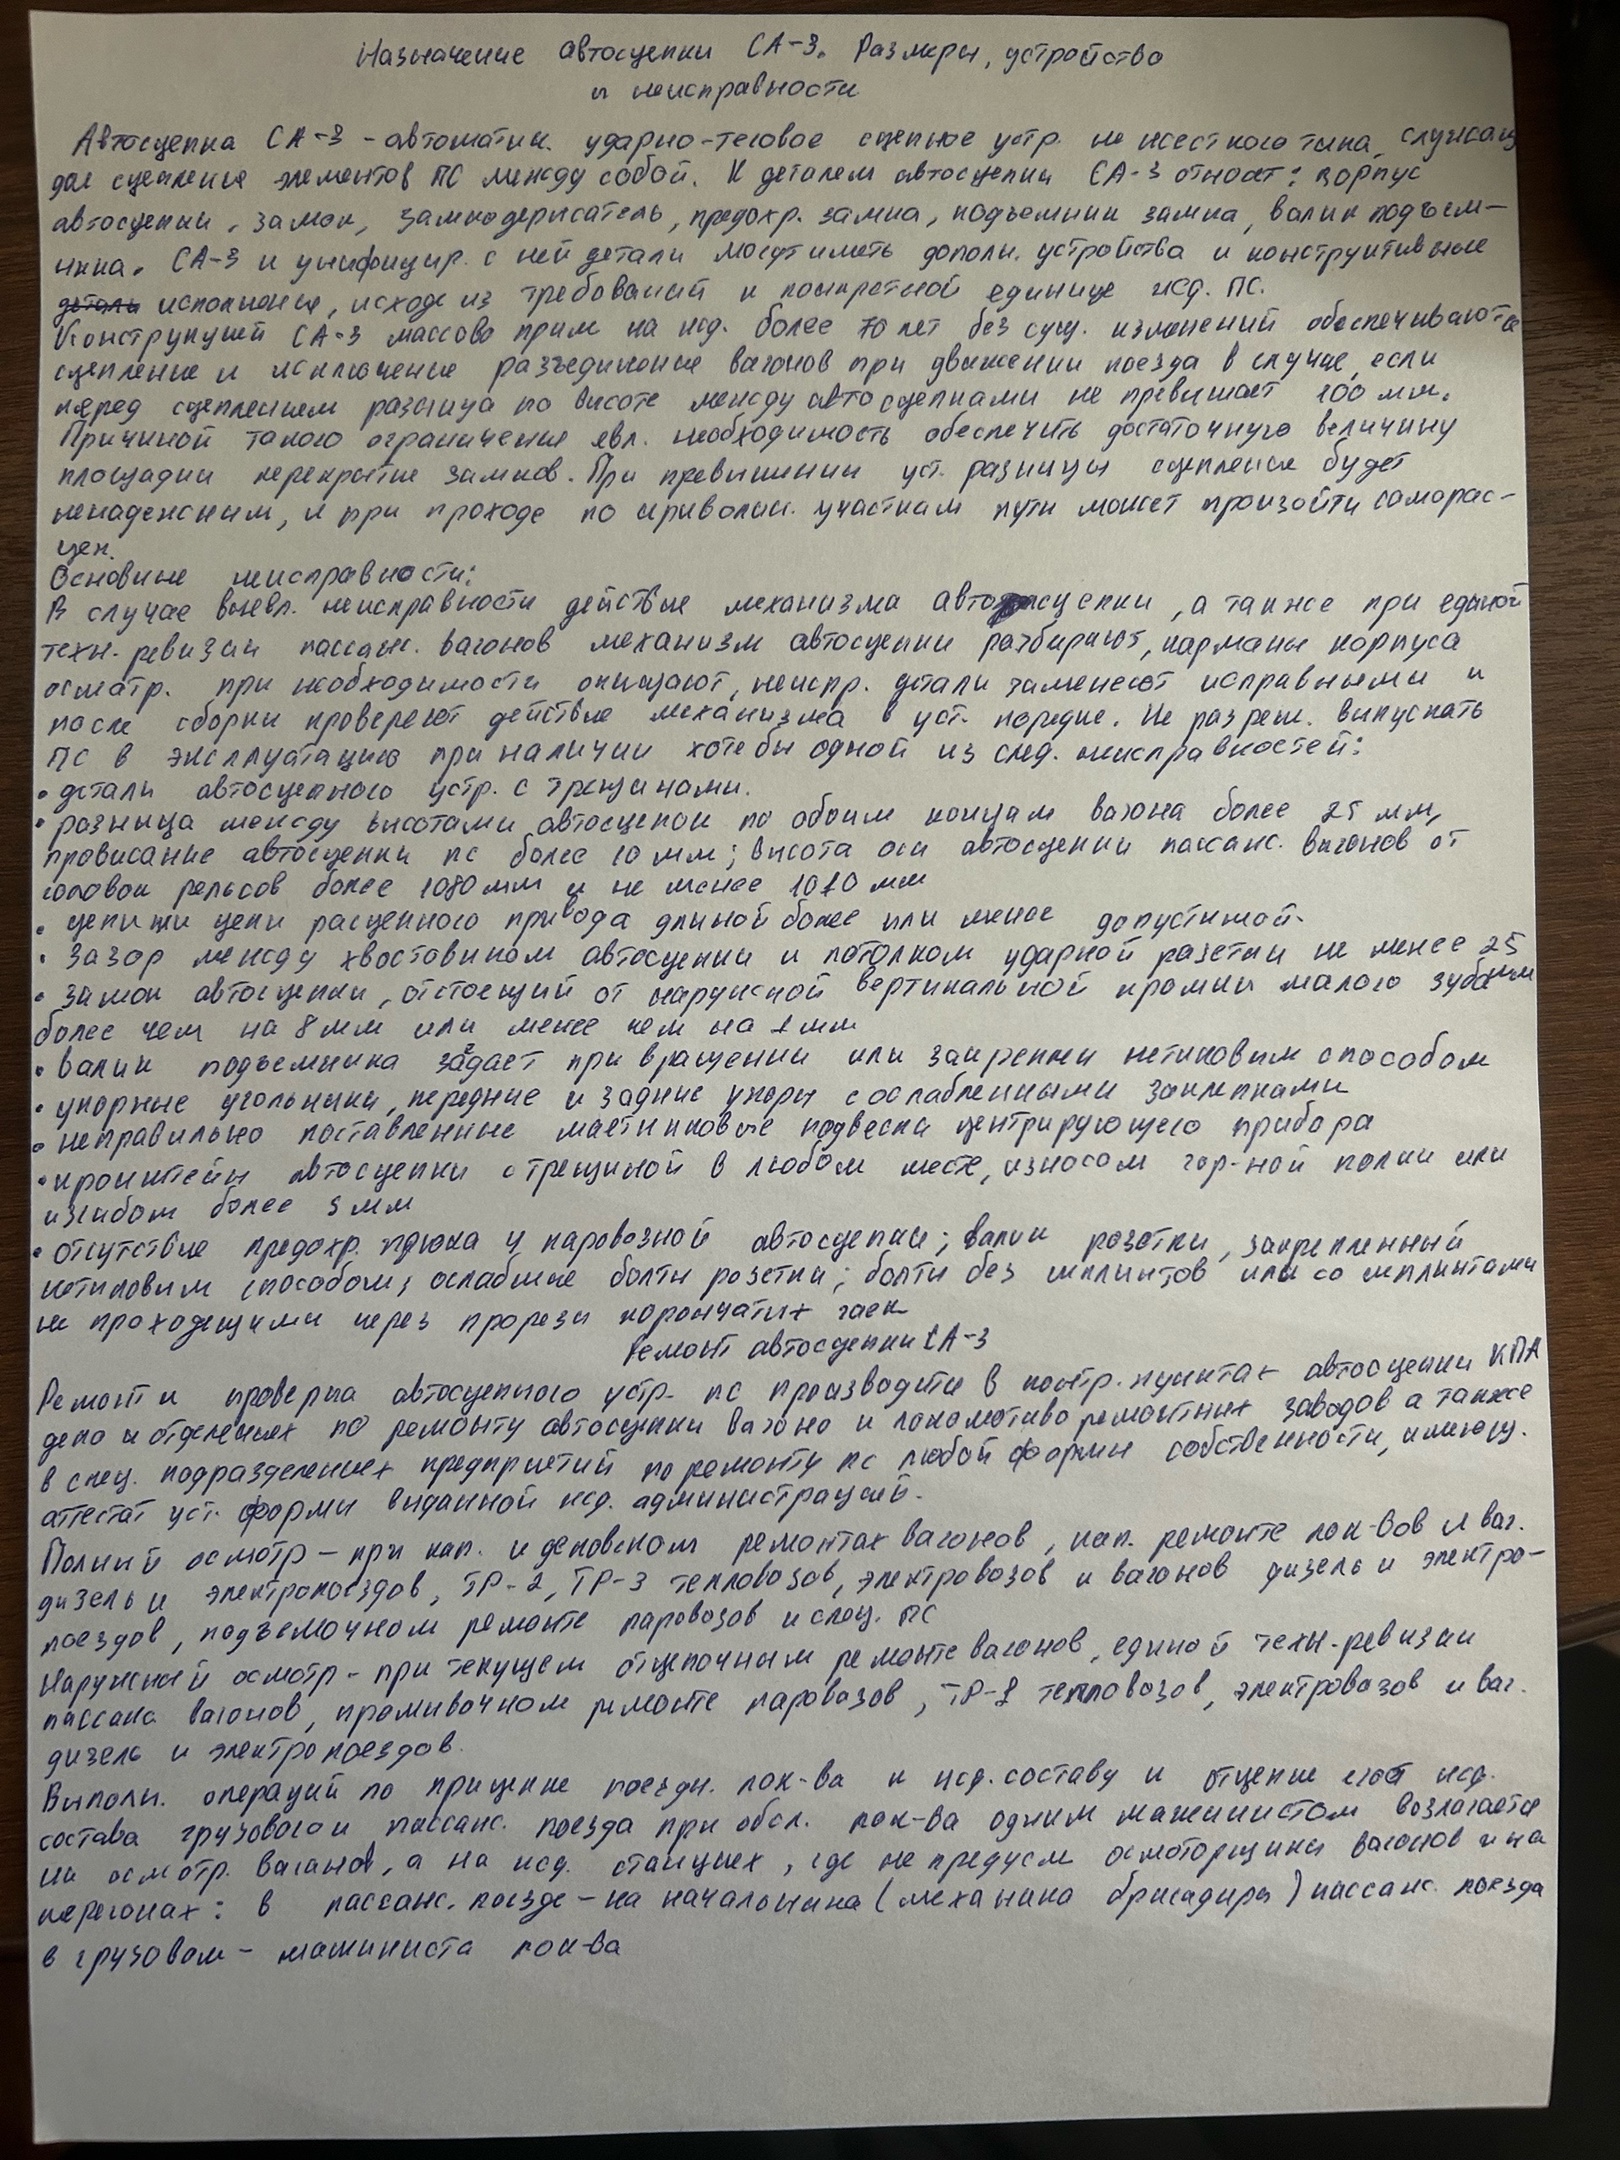 Назначение автосцепки СА-3. Размеры, устройство
и неисправности
Автосцепка СА-3 - автоматич. ударно-теговое сцепное устр. не жесткого типа, служащ
для сцепления элементов ПС между собой. К деталем автосцепки СА-3 относят: корпус
автосцепки, замок, замкодержатель, предохр. замка, подъемник замка, валик подъем-
ника. СА-3 и унифицир. с ней детали могут иметь дополн. устройства и конструктивные
исполнения, исходя из требований к конкретной единице жд. ПС.
Конструкцией СА-3 массово прим на жд. более 70 лет без сущ. изменений обеспечиваются
сцепление и исключение разъединение вагонов при движении поезда в случае, если
перед сцеплением разница по высоте между автосцепками не превышает 100 мм.
Причиной такого ограничения явл. необходимость обеспечить достаточную величину
площадки перекрытия замков. При превышении уст. разницы сцепление будет
ненадежным, и при проходе по криволин. участкам пути может произойти саморас-
цеп.
Основные неисправности:
В случае выявл. неисправности действие механизма автосцепки, а также при единой
техн. ревизии пассаж. вагонов механизм автосцепки разбирают, карманы корпуса
осматр. при необходимости очищают, неиспр. детали заменяют исправными и
после сборки проверяют действие механизма в уст. порядке. Не разреш. выпускать
ПС в эксплуатацию при наличии хотябы одной из след. неисправностей:
• детали автосцепного устр. с трещинами.
• разница между высотами автосцепок по обоим концам вагона более 25 мм,
провисание автосцепки пс более 10 мм; высота оси автосцепки пассаж. вагонов от
головок рельсов более 1080 мм и не менее 1010 мм
• цепи или цепи расцепного привода длиной более или менее допустимой.
• Зазор между хвостовиком автосцепки и потолком ударной разетки не менее 25
• замок автосцепки, отстоящий от наружной вертикальной кромки малого зуба
более чем на 8 мм или менее чем на 1 мм
• валик подъемника задает при вращении или закреплен нетиповым способом
• упорные угольники, передние и задние упоры с ослабленными заклепками
• неправильно поставленные маетниковые подвески центрирующего прибора
• кронштейн автосцепки с трещиной в любом месте, износом гор-ной полки или
изгибом более 5 мм
• отсутствие предохр. крюка у паровозной автосцепки; валик розетки, закрепленный
нетиповым способом; ослабшие болты розетки; болты без шплинтов или со шплинтами
не проходящими через прорези корончатых гаек
Ремонт автосцепки СА-3
Ремонт и проверка автосцепного устр. пс производится в контр. пунктах автосцепки КПА
депо и отделениях по ремонту автосцепки вагоно и локомотиво ремонтных заводов а также
в спец. подразделениях предприятий по ремонту пс любой формы собственности, имеющ.
аттестат уст. формы выданной жд. администрацией.
Полный осмотр - при кап. и деповском ремонтах вагонов, кап. ремонте лок-вов и ваг.
дизель и электропоездов, ТР-2, ТР-3 тепловозов, электровозов и вагонов дизель и электро-
поездов, подъемочном ремонте паровозов и спец. ПС
Наружный осмотр - при текущем отцепочным ремонте вагонов, единой техн. ревизии
пассаж вагонов, промывочном ремонте паровозов, ТР-1 тепловозов, электровозов и ваг.
дизель и электропоездов.
Выполн. операций по прицепке поездн. лок-ва к жд. составу и отцепке его от жд.
состава грузового и пассаж. поезда при обсл. лок-ва одним машинистом возлагается
на осмотр. вагонов, а на жд. станциях, где не предусм осмоторщики вагонов и на
перегонах: в пассаж. поезде - на начальника (механика бригадира) пассаж. поезда
в грузовом - машиниста лок-ва